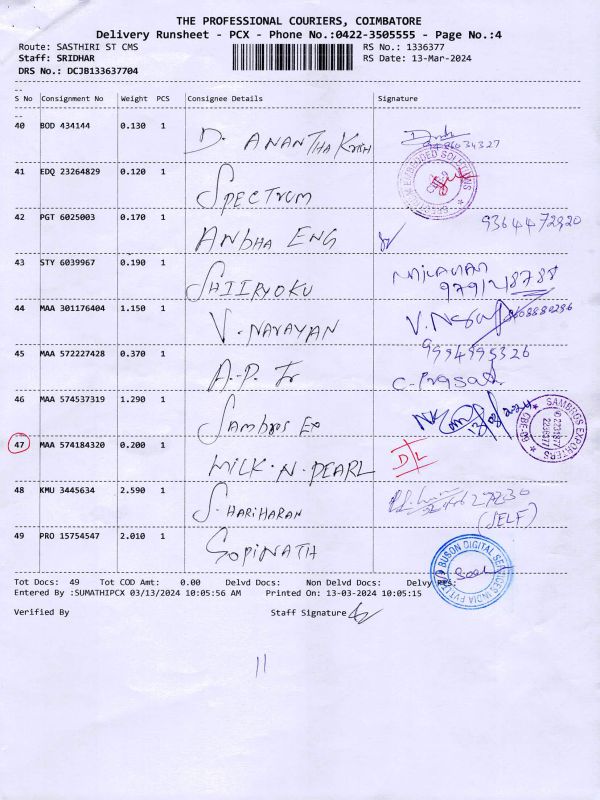 THE PROFESSIONAL COURIERS, COIMBATORE
Delivery Runsheet - PCX - Phone No.:0422-3505555 - Page No.:4
Route: SASTHIRI ST CMS RS No.: 1336377
Staff: SRIDHAR RS Date: 13-Mar-2024
DRS No.: DCJB133637704
S No Consignment No Weight PCS Consignee Details Signature
40 BOD 434144 0.130 1 D. ANANTHA
41 EDQ 23264829 0.120 1 SPECTRUM
42 PGT 6025003 0.170 1 ANBHA ENG 9364472920
43 STY 6039967 0.190 1 SHIIRYOKU
44 MAA 301176404 1.150 1 V. NARAYAN
9994995326
45 MAA 572227428 0.370 1 A.P. C. Prasath
46 MAA 574537319 1.290 1 Sambros Ex SAMBROS EXPORTERS
47 MAA 574184320 0.200 1 MILK.N.PEARL D/L
48 KMU 3445634 2.590 1 S. HARIHARAN
(SELF)
49 PRO 15754547 2.010 1 GOPINATH BUSON DIGITAL SERVICES INDIA PVT LTD
Tot Docs: 49 Tot COD Amt: 0.00 Delvd Docs: Non Delvd Docs: Delvy
Entered By :SUMATHIPCX 03/13/2024 10:05:56 AM Printed On: 13-03-2024 10:05:15
Verified By Staff Signature
11